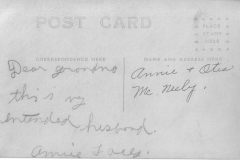 POST CARD
PLACE
STAMP
HERE
CORRESPONDENCE HERE
NAME AND ADDRESS HERE
Dear grandma
this is my
intended husband
Annie
Annie + Otis
Mc Neeby.